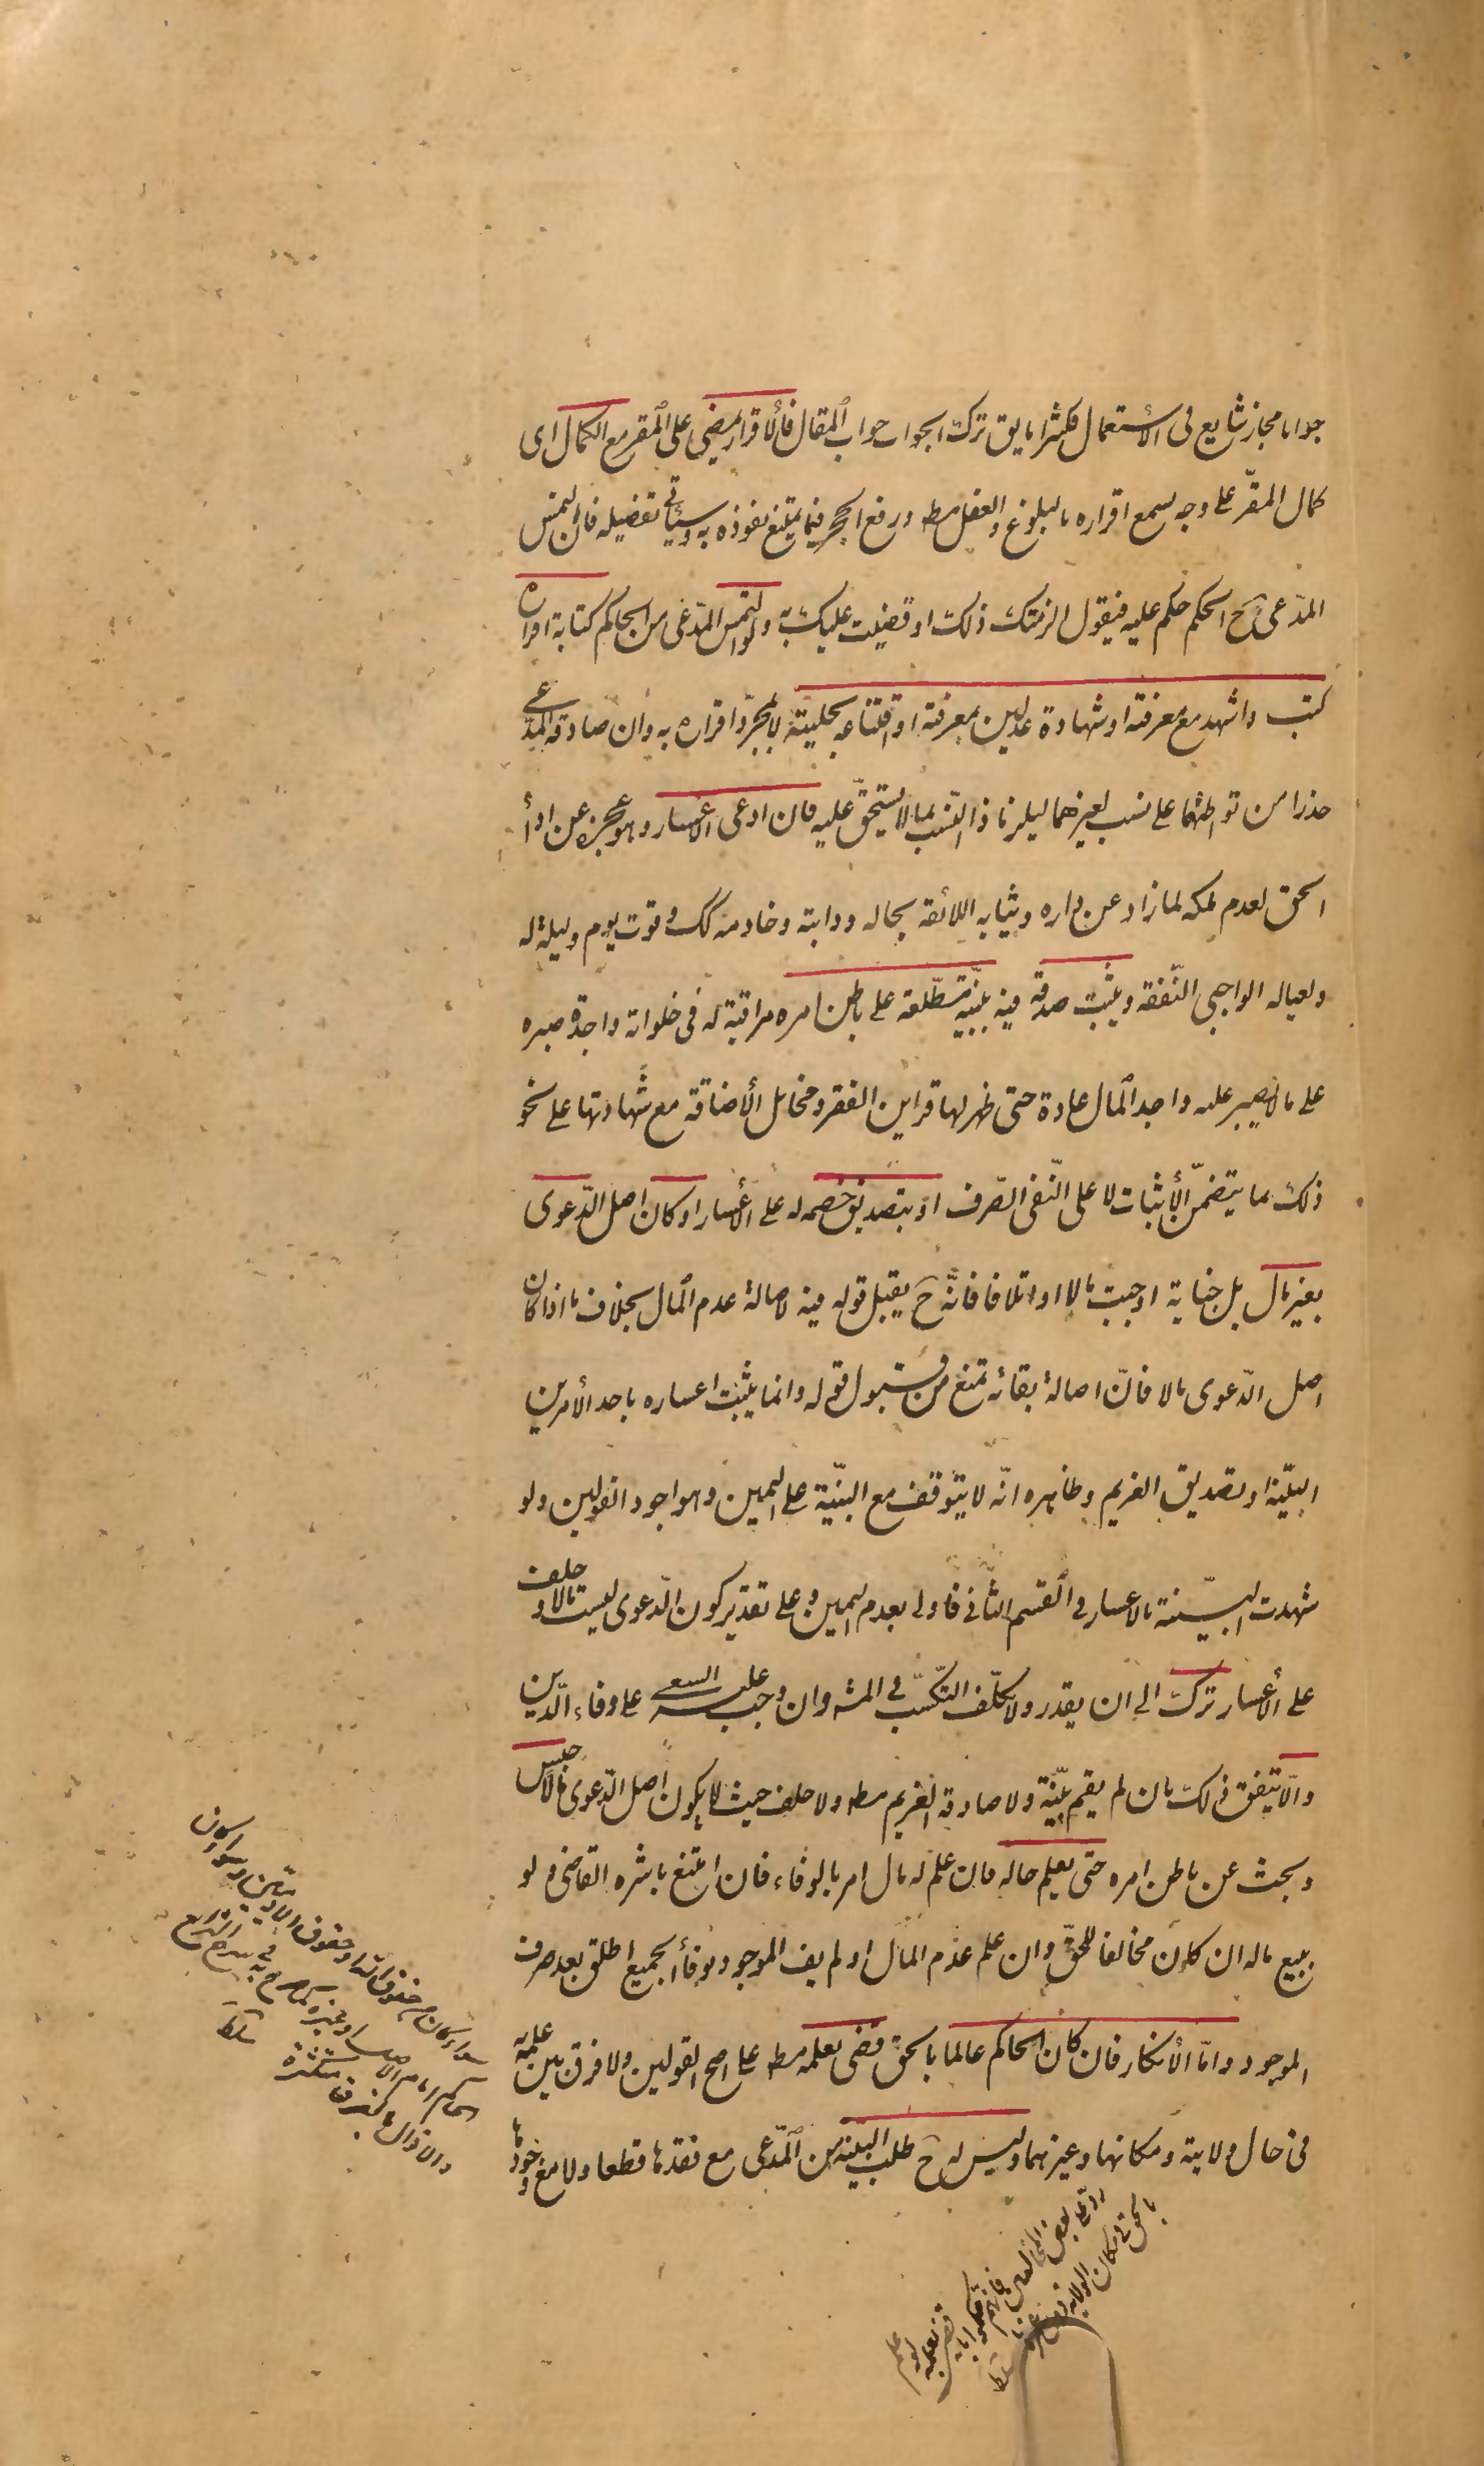 جوابا مجاز شايع في الأستعمال فكثيرا ما يق ترك الجواب جواب المقال فألاقرار يمضى على المقر مع الكمال اى
كمال المقرّ على وجه يسمع اقراره بالبلوغ والعقل مط ورفع الحجر فيما يمتنع نفوذه به وسيأتي تفصيله فان التمس
المدّعى ح الحكم حكم عليه فيقول الزمتك ذلك او قضيت عليك به ولو التمس المدّعى من الحاكم كتابة اقراره
كتب واشهد مع معرفته او شهادة عدلين بمعرفته او اقتناعه بحليته لا بمجرّد اقراره به وان صادقه المدّعى
حذرا من تواطئهما على نسب لغيرهما ليلزما ذا النّسب بما لا يستحقّ عليه فان ادعى الاعسار وهو عجزه عن اداء
الحق لعدم ملكه لما زاد عن داره وثيابه اللائقة بحاله ودابته وخادمه كك وقوت يوم وليلة له
ولعياله الواجبى النّفقه ويثبت صدقه فيه ببيّنة مطّلعة على باطن امره مراقبة له فى خلواته واجدة صبره
على ما لا يصبر عليه واجد المال عادة حتى ظهر لها قراين الفقر ومخائل الأضاقة مع شهادتها على نحو
ذلك مما يتضمّن الأثبات لا على النّفى الصّرف او بتصديق خصمه له على الأعسار او كان اصل الدّعوى
بغير مال بل جناية اوجبت مالا او اتلافا فانّه ح يقبل قوله فيه لاصالة عدم المال بخلاف ما اذا كان
اصل الدّعوى مالا فانّ اصالة بقائه تمنع من قبول قوله وانما يثبت اعساره باحد الأمرين
البيّنة او تصديق الغريم وظاهره انّه لا يتوقف مع البيّنة على اليمين وهو اجود القولين ولو
شهدت البيّنة بالاعسار في القسم الثّانى فاولى بعدم اليمين وعلى تقدير كون الدّعوى ليست مالا وحلف
على الأعسار ترك الى ان يقدر ولا يكلّف التّكسّب في المش وان وجب عليه السعى على وفاء الدّين
والّا يتفق ذلك بان لم يقم بيّنة ولا صادقه الغريم مط ولا حلف حيث لا يكون اصل الدّعوى مالا حبس
وبحث عن باطن امره حتى يعلم حاله فان علم له مال امر بالوفاء فان امتنع باشره القاضى ولو
ببيع ماله ان كان مخالفا للحقّ وان علم عدم المال او لم يف الموجود بوفاء الجميع اطلق بعد صرف
الموجود وامّا الأنكار فان كان الحاكم عالما بالحق قضى بعلمه مط على اصح القولين ولا فرق بين علمه
فى حال ولايته ومكانها وغيرهما وليس له ح طلب البيّنة من المدّعى مع فقدها قطعا ولا مع وجودها
ردّ على بعض المخالفين